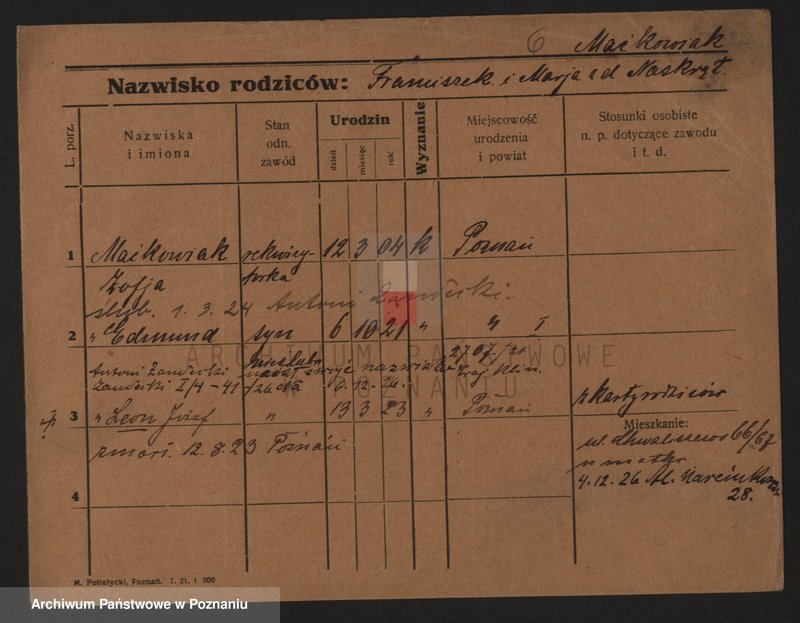 6 Maćkowiak
Nazwisko rodziców: Franciszek i Marja z d Naskręt.
L. porz.
Nazwiska
i imiona
Stan
odn.
zawód
Urodzin
dzień
miesiąc
rok
Wyznanie
Miejscowość
urodzenia
i powiat
Stosunki osobiste
n. p. dotyczące zawodu
i t. d.
1 Maćkowiak 12 3 04 k Poznań
Zofja
ślub. 1. 3. 24 Antoni
2 " Edmund syn 6 10 21 " "
Antoni
I/4-41 nadał swoje nazwisko
6-12-26.
3 " Leon Józef " 13 3 23 " Poznań
zmarł. 12. 8. 23 Poznań
z karty rodziców
Mieszkanie:
ul. Chwaliszewo 66/67
u matki
4.12.26 Al. Marcinkow
28.
4
M. Putiatycki, Poznań. 7. 21. 1 000
ARCHIWUM PAŃSTWOWE
W POZNANIU
Archiwum Państwowe w Poznaniu